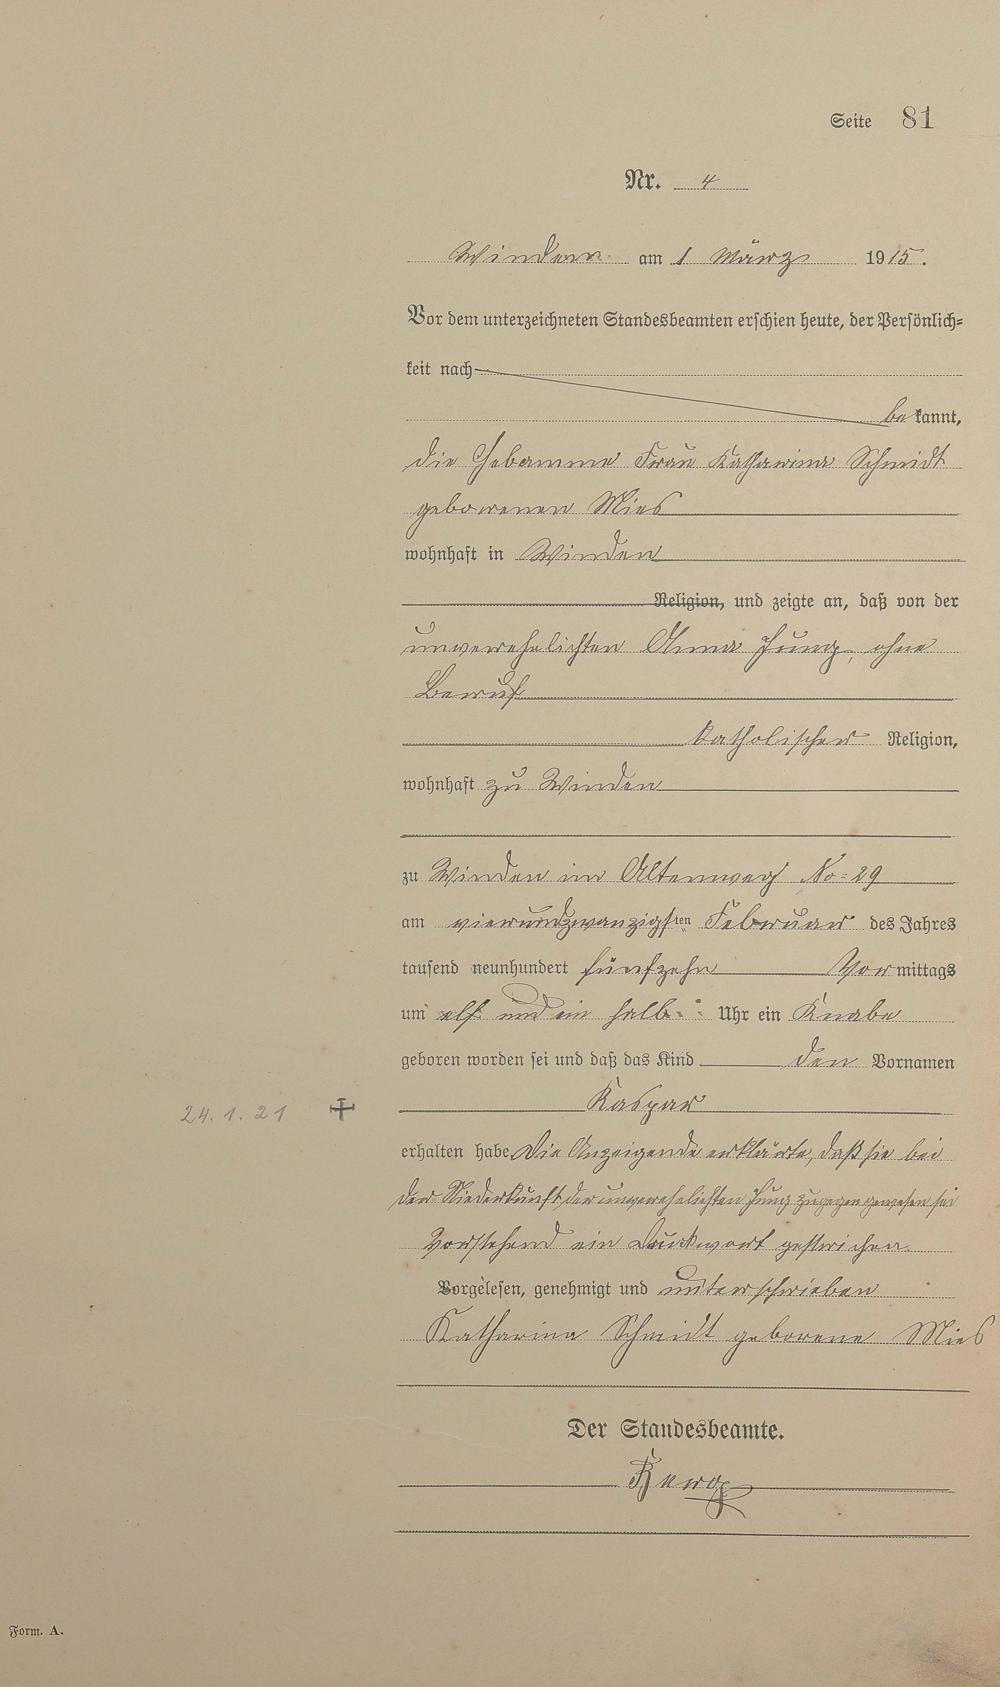 Seite 81
Nr. 4
Winden am 1 März 1915.
Vor dem unterzeichneten Standesbeamten erschien heute, der Persönlich=
keit nach
bekannt,
die Hebamme Frau Katharina Schmidt
geborenen Mies
wohnhaft in Winden
Religion, und zeigte an, daß von der
unverehelichten Anna Jung, ohne
Beruf
katholischer Religion,
wohnhaft zu Winden
zu Winden im Altenweg No= 29
am vierundzwanzigsten Februar des Jahres
tausend neunhundert fünfzehn Vormittags
um elf und ein halb Uhr ein Knabe
geboren worden sei und daß das Kind den Vornamen
24.1.21 ✝ Kaspar
erhalten habe Die Anzeigende erklärte, daß sie bei
der Niederkunft der unverehelichten Jung zugegen gewesen sei
Vorstehend ein Druckwort gestrichen.
Vorgelesen, genehmigt und unterschrieben
Katharina Schmidt geborene Mies
Der Standesbeamte.
Form. A.